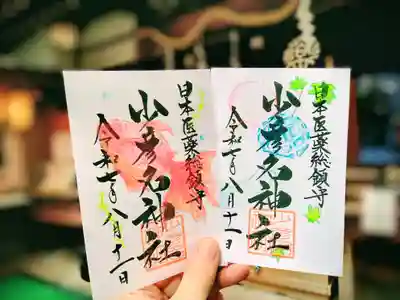 日本医薬総鎮守
少彦名神社
令和七年八月十一日
日本医薬総鎮守
少彦名神社
令和七年八月十一日